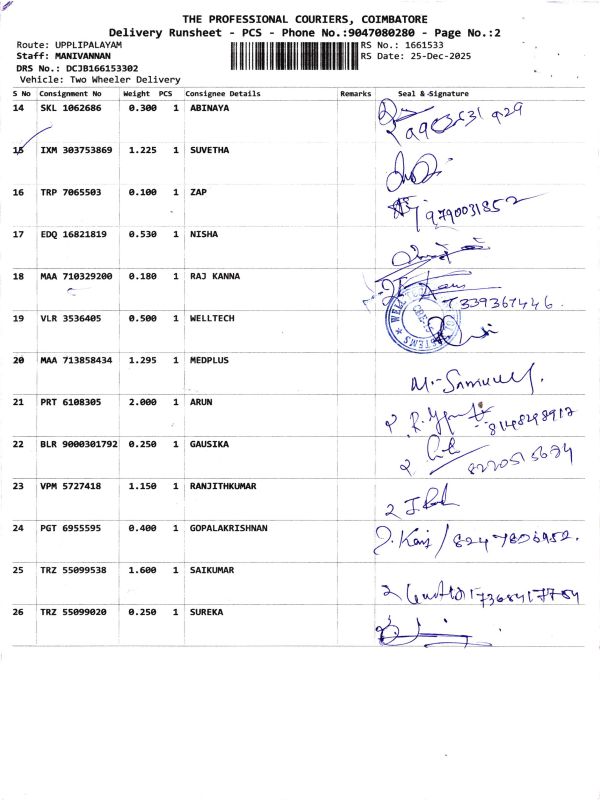 THE PROFESSIONAL COURIERS, COIMBATORE
Delivery Runsheet - PCS - Phone No.:9047080280 - Page No.:2
Route: UPPLIPALAYAM
RS No.: 1661533
Staff: MANIVANNAN
RS Date: 25-Dec-2025
DRS No.: DCJB166153302
Vehicle: Two Wheeler Delivery
S No Consignment No Weight PCS Consignee Details Remarks Seal & Signature
14 SKL 1062686 0.300 1 ABINAYA
15 IXM 303753869 1.225 1 SUVETHA
16 TRP 7065503 0.100 1 ZAP 9790031852
17 EDQ 16821819 0.530 1 NISHA
18 MAA 710329200 0.180 1 RAJ KANNA 7339367446.
19 VLR 3536405 0.500 1 WELLTECH
20 MAA 713858434 1.295 1 MEDPLUS
M.-Samuel.
21 PRT 6108305 2.000 1 ARUN 8148298912
22 BLR 9000301792 0.250 1 GAUSIKA 8220515674
23 VPM 5727418 1.150 1 RANJITHKUMAR
24 PGT 6955595 0.400 1 GOPALAKRISHNAN
25 TRZ 55099538 1.600 1 SAIKUMAR
26 TRZ 55099020 0.250 1 SUREKA